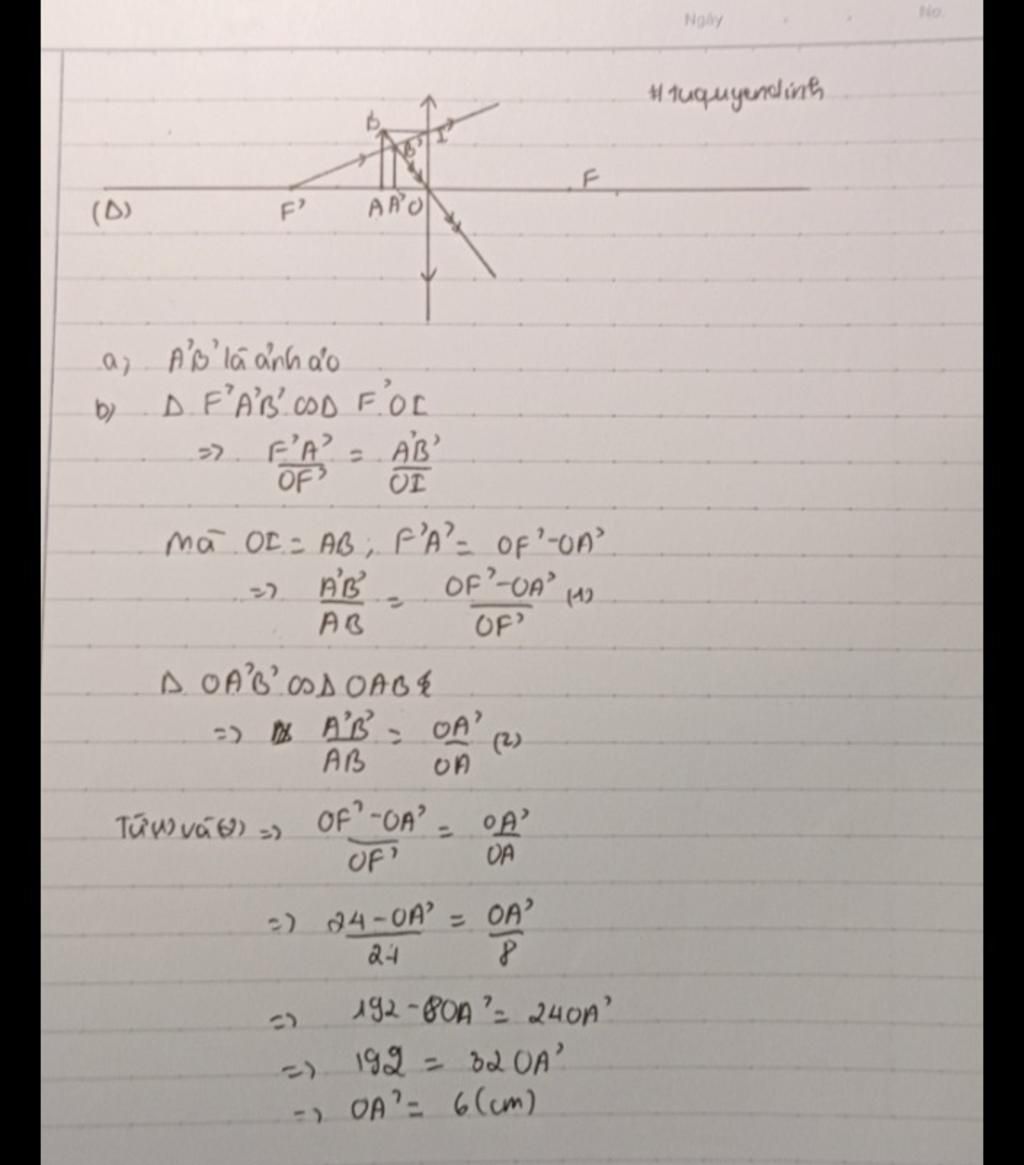 Ngày No.
#tuquyendinh
B B' I
F
(Δ) F' A A' O
a, A'B' là ảnh ảo
b) Δ F'A'B' ∽ Δ F'OI
=> F'A'/OF' = A'B'/OI
Mà OI = AB ; F'A' = OF' - OA'
=> A'B'/AB = OF' - OA'/OF' (1)
Δ OA'B' ∽ Δ OAB
=> A'B'/AB = OA'/OA (2)
Từ (1) và (2) => OF' - OA'/OF' = OA'/OA
=> 24 - OA'/24 = OA'/8
=> 192 - 8OA' = 24OA'
=> 192 = 32 OA'
=> OA' = 6 (cm)